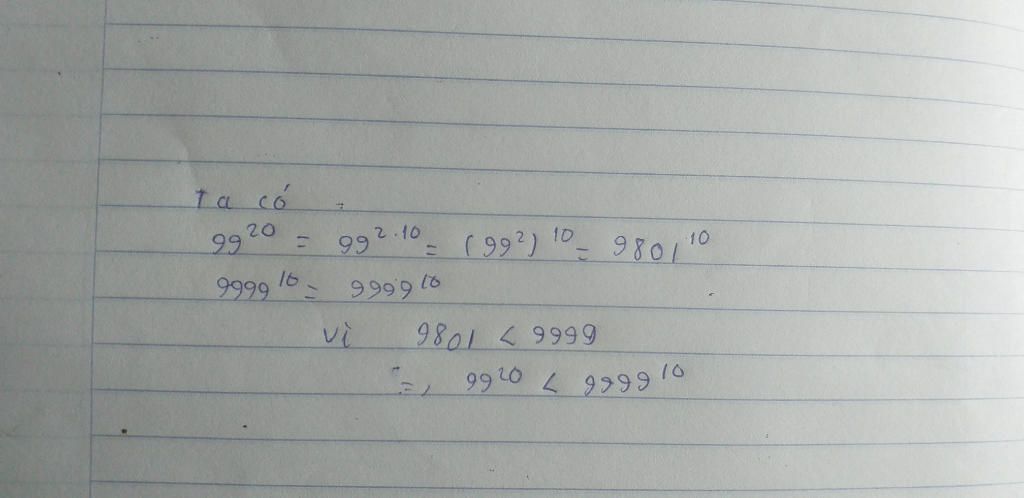 Ta có :
99²⁰ = 99²·¹⁰ = (99²)¹⁰ = 9801¹⁰
9999¹⁰ = 9999¹⁰
vì 9801 < 9999
=> 99²⁰ < 9999¹⁰